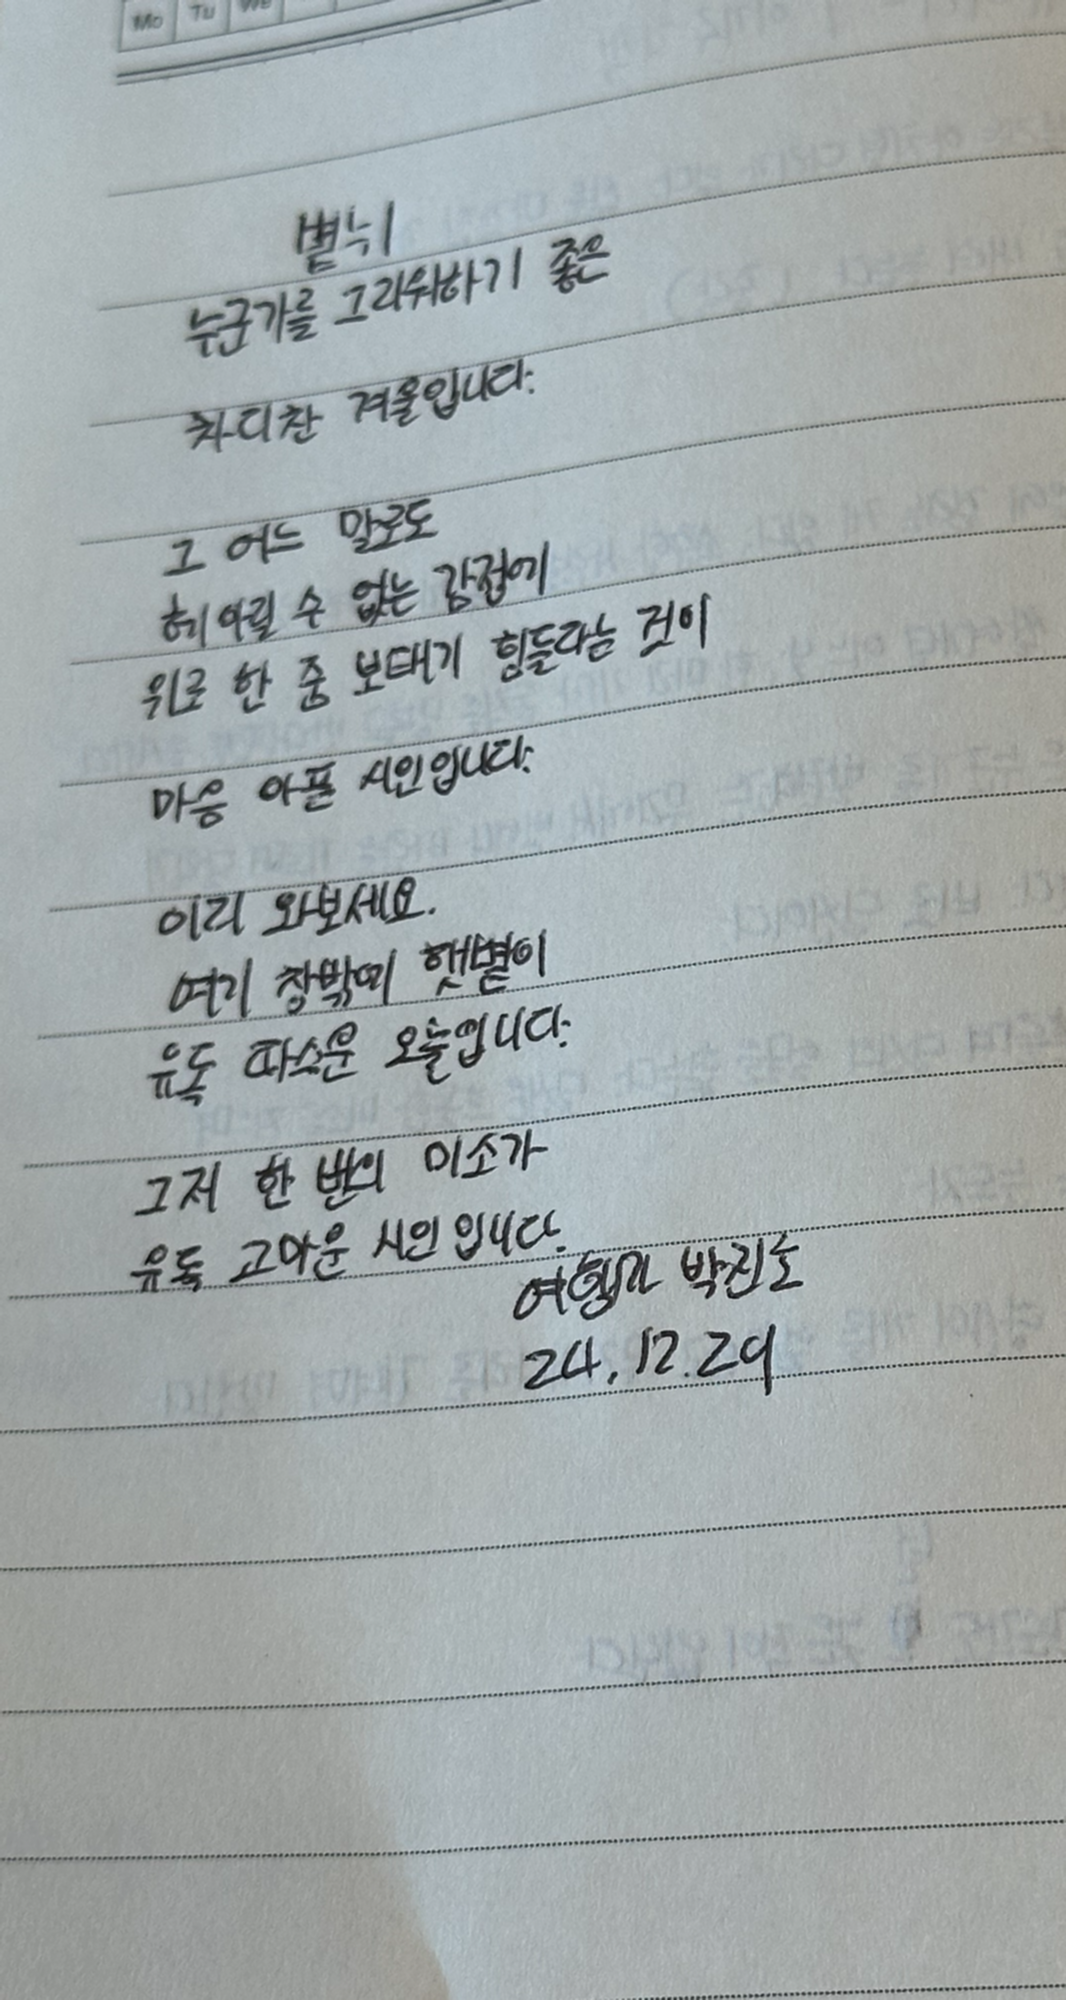 Mo Tu We
볕뉘
누군가를 그리워하기 좋은
차디찬 겨울입니다.
그 어느 말로도
헤아릴 수 없는 감정에
위로 한 줌 보태기 힘들다는 것이
마음 아플 시인입니다.
이리 와보세요.
여기 창밖의 햇볕이
유독 따스운 오늘입니다.
그저 한 번의 미소가
유독 고마운 시인입니다.
여행가 박진호
24.12.29